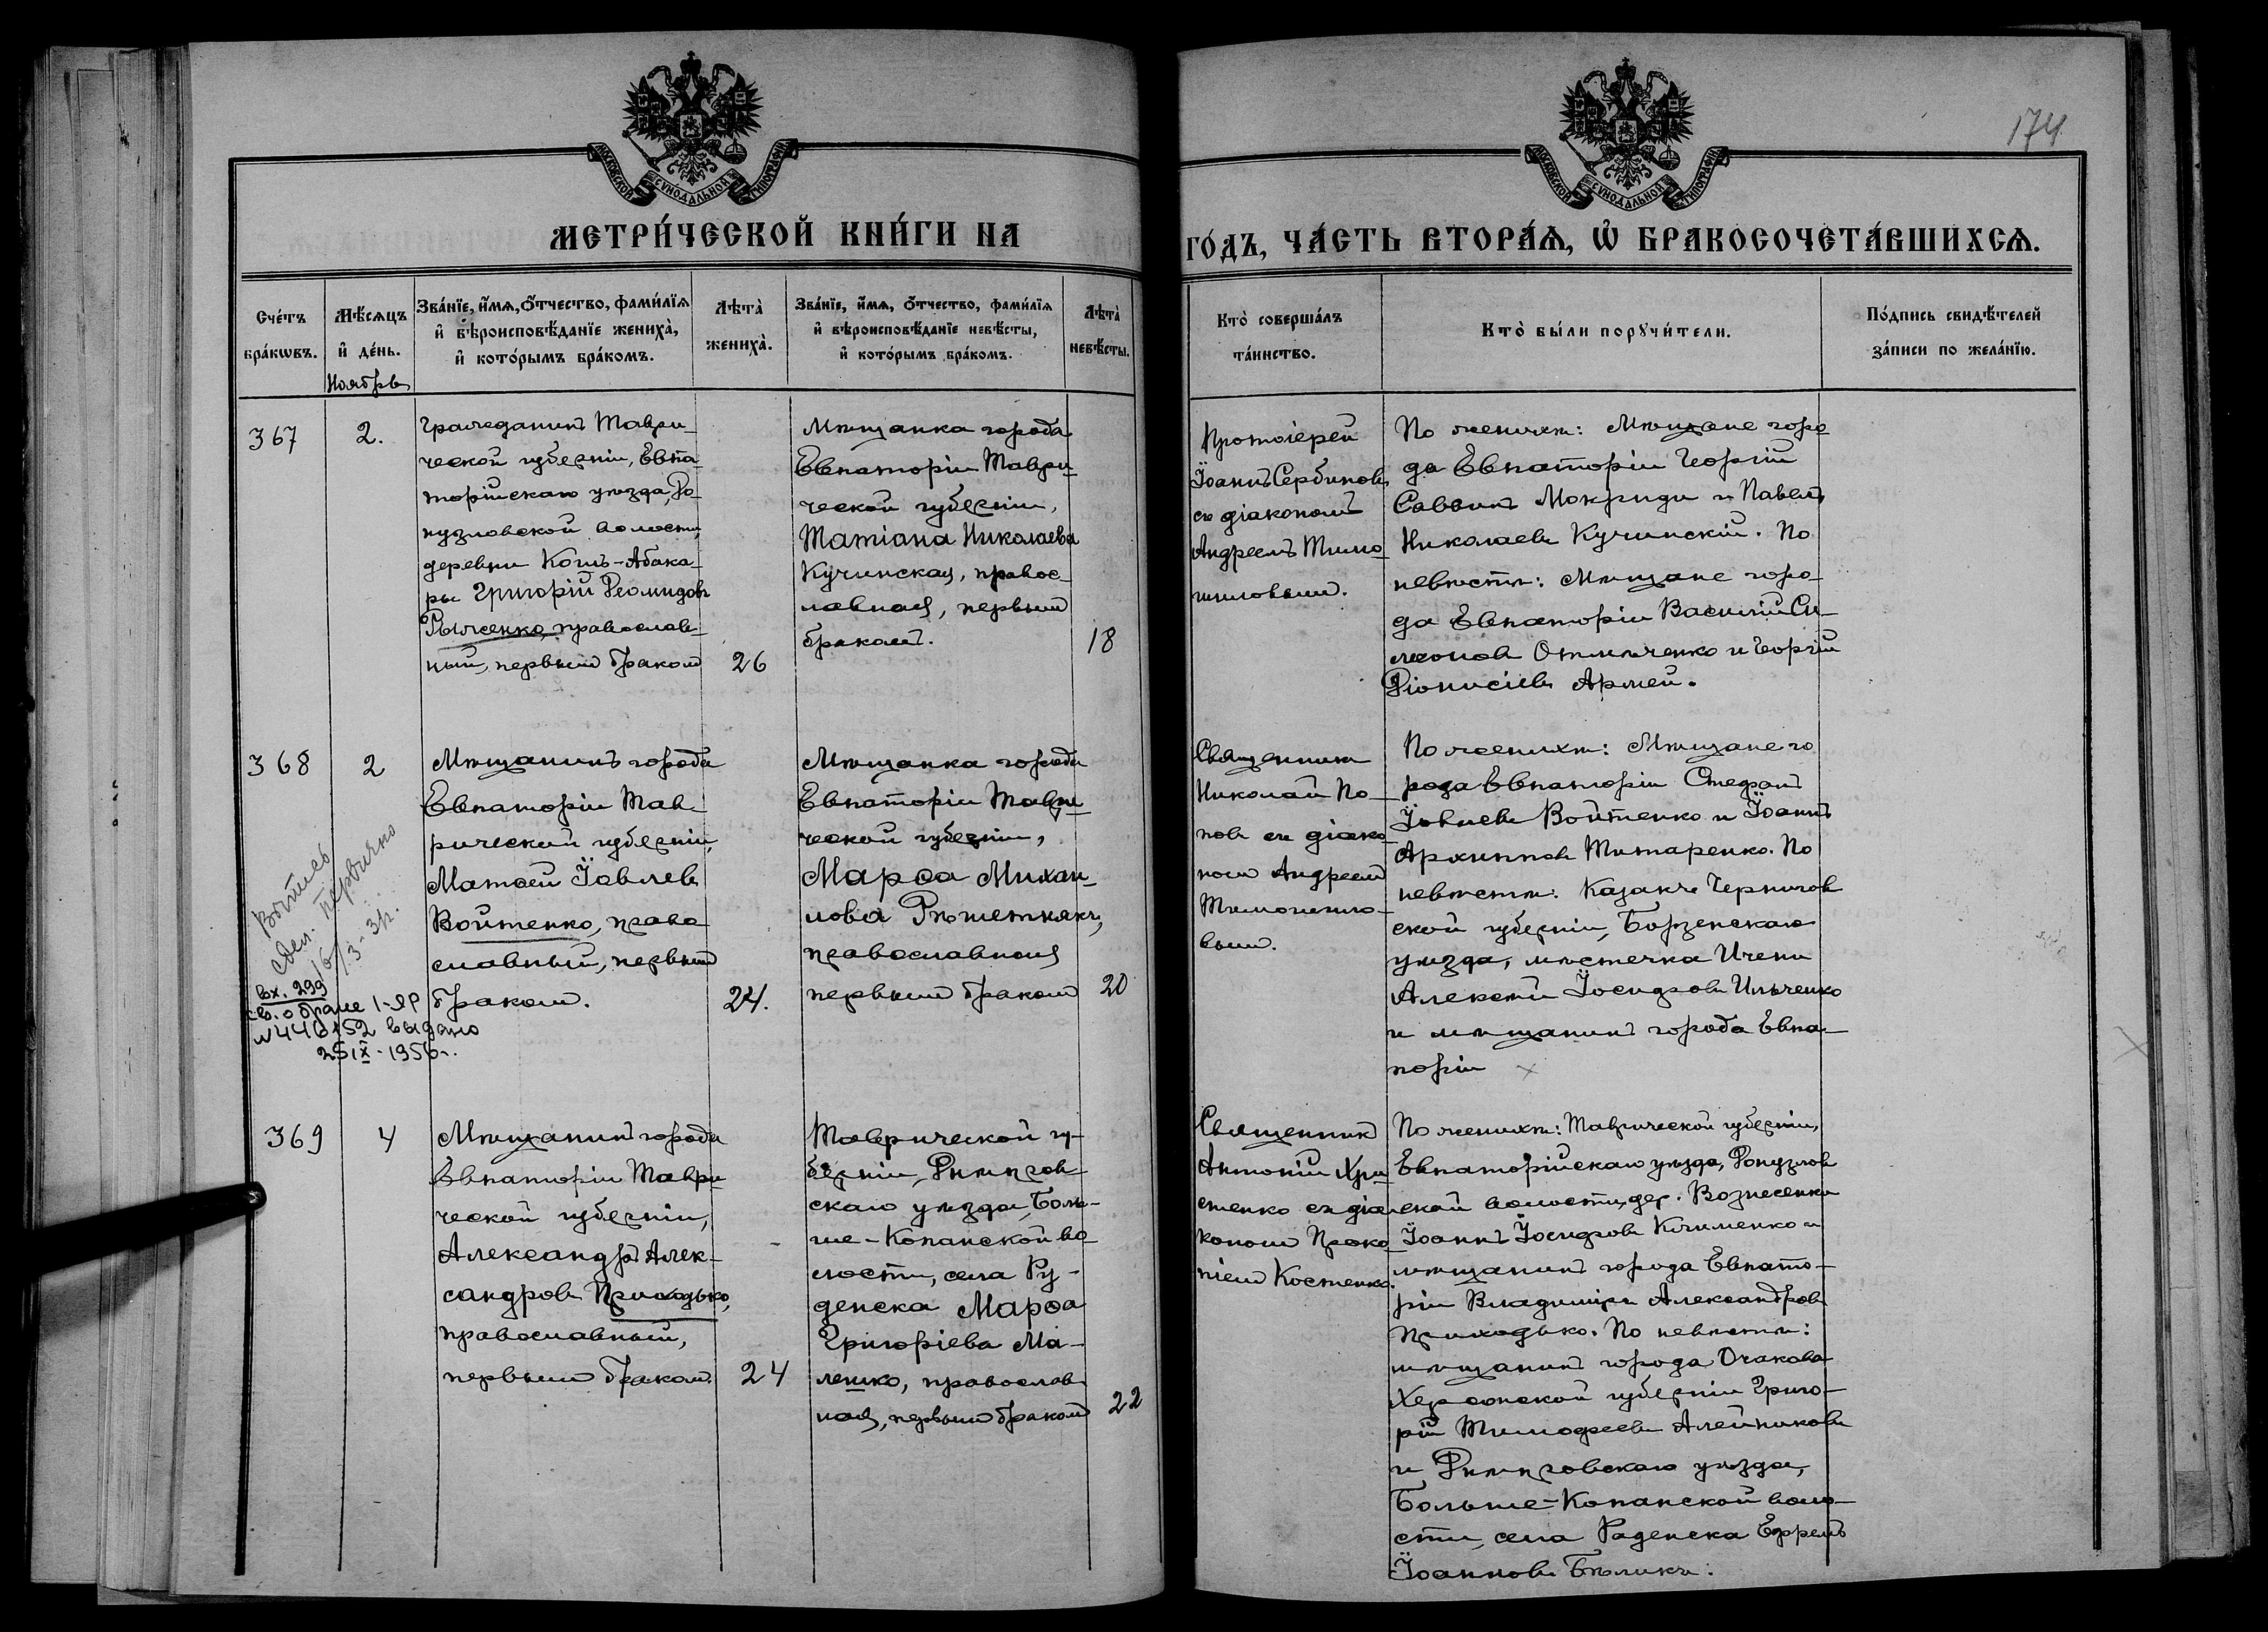 174
МОСКОВСКОЙ СѴНОДАЛЬНОЙ ТИПОГРАФІИ
МОСКОВСКОЙ СѴНОДАЛЬНОЙ ТИПОГРАФІИ
МЕТРИ́ЧЕСКОЙ КНИ́ГИ НА
ГО́ДЪ, ЧА́СТЬ ВТОРА́Ѧ, Ѽ БРАКОСОЧЕТА́ВШИХСѦ.
Сче́тъ
бра́кѡвъ.
Мѣ́сѧцъ
и҆ де́нь.
Ноябрь
Зва́нїе, и҆́мѧ, ѻ҆́тчество, фами́лїѧ
и҆ вѣроисповѣ́данїе жениха̀,
и҆ кото́рымъ бра́комъ.
Лѣта̀
жениха̀.
Зва́нїе, и҆́мѧ, ѻ҆́тчество, фами́лїѧ
и҆ вѣроисповѣ́данїе невѣ́сты,
и҆ кото́рымъ бра́комъ.
Лѣта̀
невѣ́сты.
Кто̀ соверша́лъ
та́инство.
Кто̀ бы́ли порꙋчи́тели.
По́дпись свидѣ́телей
за́писи по жела́нїю.
367
2.
Гражданинъ Таври-
ческой губерніи, Евпа-
торійскаго уѣзда, До-
нузловской волости,
деревни Кошъ-Абака-
ры Григорій Деомидовъ
Рыженко, православ-
ный, первымъ бракомъ
26
Мѣщанка города
Евпаторіи Таври-
ческой губерніи,
Татіана Николаева
Кучинская, правос-
лавная, первымъ
бракомъ.
18
Протоіерей
Іоаннъ Сербиновъ
съ діакономъ
Андреемъ Тимо-
шиловымъ.
По женихѣ: Мѣщане горо
да Евпаторіи Георгій
Саввинъ Мокриди и Павелъ
Николаевъ Кучинскій. По
невѣстѣ: Мѣщане горо-
да Евпаторіи Василій Си-
меоновъ Отмѣченко и Георгій
Діонисіевъ Армей.
368
2
Мѣщанинъ города
Евпаторіи Тав-
рической губерніи,
Матѳей Іовлевъ
Войтенко, право
славный, первымъ
бракомъ.
24.
Мѣщанка города
Евпаторіи Таври-
ческой губерніи,
Марѳа Михаи-
лова Рѣшетнякъ,
православная
первымъ бракомъ
20
Священникъ
Николай По-
повъ съ діако-
номъ Андреемъ
Тимошило-
вымъ.
По женихѣ: Мѣщане го
рода Евпаторіи Стефанъ
Іовлевъ Войтенко и Іоаннъ
Архиповъ Титаренко. По
невѣстѣ: Казакъ Чернигов
ской губерніи, Борзенскаго
уѣзда, мѣстечка Ични
Алексѣй Іосифовъ Ильченко
и мѣщанинъ города Евпа-
торіи
Выпись
сдел. первично
16/3-3
вх. 299
св. о браке 1-ЯР
№ 446152 выдано
25 IX - 1956 г.
369
4
Мѣщанинъ города
Евпаторіи Таври-
ческой губерніи,
Александръ Алек-
сандровъ Приходько,
православный,
первымъ бракомъ.
24
Таврической гу-
берніи, Днѣпров
скаго уѣзда, Боль-
ше-Копанской во-
лости, села Ру-
денска Марѳа
Григоріева Ма-
лешко, православ-
ная, первымъ бракомъ
22
Священникъ
Антоній Хри-
стенко съ діа-
кономъ Проко-
піемъ Костенко.
По женихѣ: Таврической губерніи,
Евпаторійскаго уѣзда, Донузлов
ской волости, дер. Вознесенки
Іоаннъ Іосифовъ Клименко и
мѣщанинъ города Евпато-
ріи Владиміръ Александровъ
Приходько. По невѣстѣ:
мѣщанинъ города Очакова
Херсонской губерніи Григо-
рій Тимофеевъ Алейниковъ
и Днѣпровскаго уѣзда,
Больше-Копанской воло-
сти, села Раденска Ефремъ
Іоанновъ Бѣликъ.